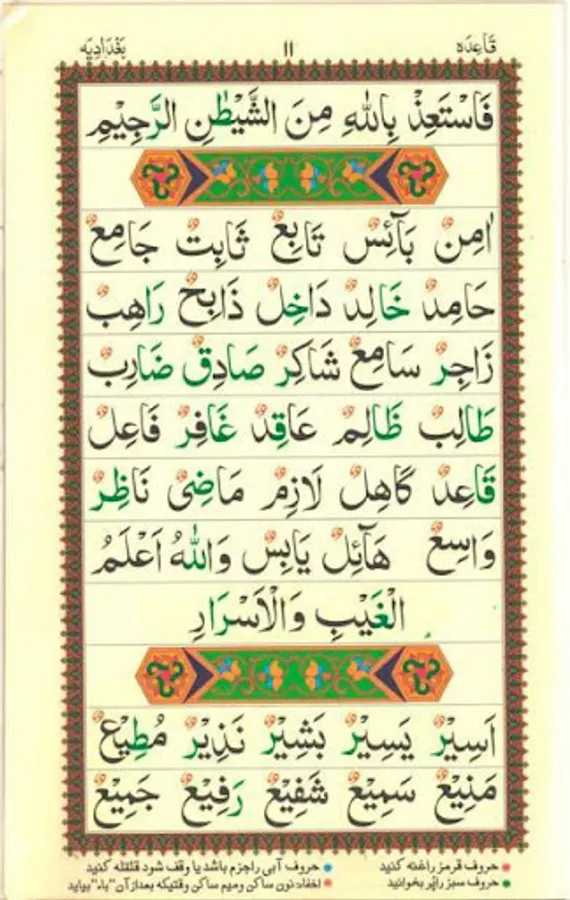 قاعده ۱۱ بغدادیه
فَاسْتَعِذْ بِاللّٰهِ مِنَ الشَّيْطٰنِ الرَّجِيْمِ
اٰمِنٌ بَآئِسٌ تَابِعٌ ثَابِتٌ جَامِعٌ
حَامِدٌ خَالِدٌ دَاخِلٌ ذَابِحٌ رَاهِبٌ
زَاجِرٌ سَامِعٌ شَاكِرٌ صَادِقٌ ضَارِبٌ
طَالِبٌ ظَالِمٌ عَاقِدٌ غَافِرٌ فَاعِلٌ
قَاعِدٌ كَاهِلٌ لَازِمٌ مَاضِیٌ نَاظِرٌ
وَاسِعٌ هَآئِلٌ يَابِسٌ وَاللّٰهُ اَعْلَمُ
الْغَيْبِ وَالْاَسْرَارِ
اَسِيْرٌ يَسِيْرٌ بَشِيْرٌ نَذِيْرٌ مُطِيْعٌ
مَنِيْعٌ سَمِيْعٌ شَفِيْعٌ رَفِيْعٌ جَمِيْعٌ
حروف قرمز را غنه کنید حروف آبی را جزم باشد یا وقف شود قلقله کنید
حروف سبز را پُر بخوانید اخفاء نون ساکن و میم ساکن وقتیکه بعد از آن "باء" بیاید